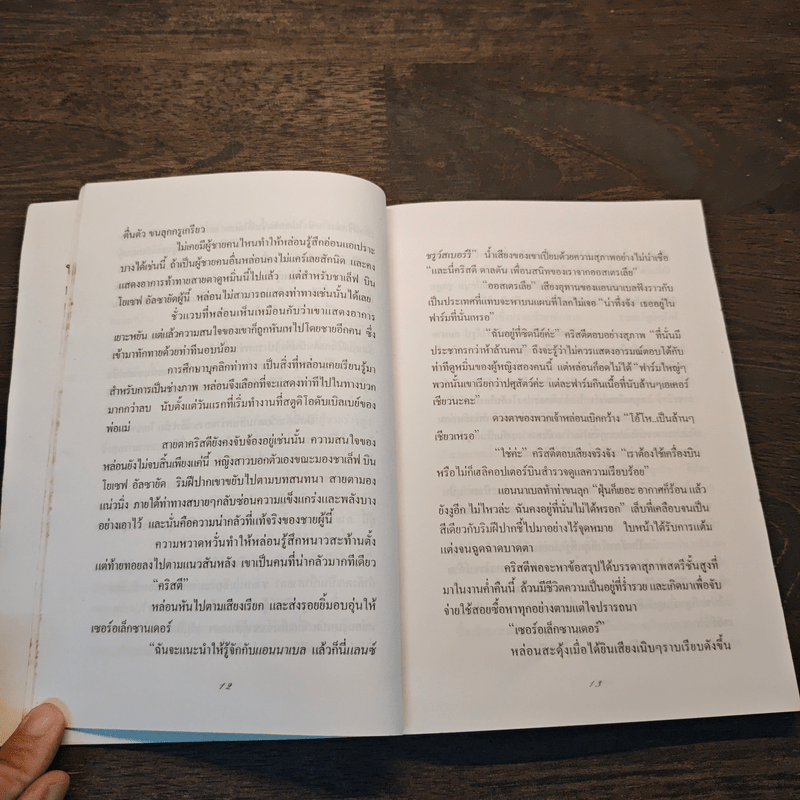 ตื่นตัว ขนลุกกรูเกรียว
ไม่เคยมีผู้ชายคนไหนทำให้หล่อนรู้สึกอ่อนแอเปราะ
บางได้เช่นนี้ ถ้าเป็นผู้ชายคนอื่นหล่อนคงไม่แคร์เลยสักนิด และคง
แสดงอาการท้าทายสายตาดูหมิ่นนี้ไปแล้ว แต่สำหรับชาเล็ฟ บิน
โยเซฟ อัลซายัดผู้นี้ หล่อนไม่สามารถแสดงท่าทางเช่นนั้นได้เลย
ชั่วแวบที่หล่อนเห็นเหมือนกับว่าเขาแสดงอาการ
เยาะหยัน แต่แล้วความสนใจของเขาก็ถูกหันเหไปโดยชายอีกคน ซึ่ง
เข้ามาทักทายด้วยท่าทีนอบน้อม
การศึกษาบุคลิกท่าทาง เป็นสิ่งที่หล่อนเคยเรียนรู้มา
สำหรับการเป็นช่างภาพ หล่อนจึงเลือกที่จะแสดงท่าทีไปในทางบวก
มากกว่าลบ นับตั้งแต่วันแรกที่เริ่มทำงานที่สตูดิโอดับเบิลเบย์ของ
พ่อแม่
สายตาคริสตียังคงจับจ้องอยู่เช่นนั้น ความสนใจของ
หล่อนยังไม่จบสิ้นเพียงแค่นี้ หญิงสาวบอกตัวเองขณะมองชาเล็ฟ บิน
โยเซฟ อัลซายัด ริมฝีปากเขาขยับไปตามบทสนทนา สายตามอง
แน่วนิ่ง ภายใต้ท่าทางสบายๆกลับซ่อนความแข็งแกร่งและพลังบาง
อย่างเอาไว้ และนั่นคือความน่ากลัวที่แท้จริงของชายผู้นี้
ความหวาดหวั่นทำให้หล่อนรู้สึกหนาวสะท้านตั้ง
แต่ท้ายทอยลงไปตามแนวสันหลัง เขาเป็นคนที่น่ากลัวมากทีเดียว
“คริสตี”
หล่อนหันไปตามเสียงเรียก และส่งรอยยิ้มอบอุ่นให้
เซอร์อเล็กซานเดอร์
“ฉันจะแนะนำให้รู้จักกับแอนนาเบล แล้วก็นี่แลนซ์
12
ชรูว์สเบอร์รี” น้ำเสียงของเขาเปี่ยมด้วยความสุภาพอย่างไม่น่าเชื่อ
“และนี่คริสตี ดาลตัน เพื่อนสนิทของเราจากออสเตรเลีย”
“ออสเตรเลีย” เสียงอุทานของแอนนาเบลฟังราวกับ
เป็นประเทศที่แทบจะหาบนแผนที่โลกไม่เจอ “น่าทึ่งจัง เธออยู่ใน
ฟาร์มที่นั่นเหรอ”
“ฉันอยู่ที่ซิดนีย์ค่ะ” คริสตีตอบอย่างสุภาพ “ที่นั่นมี
ประชากรกว่าห้าล้านคน” ถึงจะรู้ว่าไม่ควรแสดงอารมณ์ตอบโต้กับ
ท่าทีดูหมิ่นของผู้หญิงสองคนนี้ แต่หล่อนก็อดไม่ได้ “ฟาร์มใหญ่ๆ
พวกนั้นเขาเรียกว่าปศุสัตว์ค่ะ แต่ละฟาร์มกินเนื้อที่นับล้านๆเอเคอร์
เชียวนะคะ”
ดวงตาของพวกเจ้าหล่อนเบิกกว้าง “โอ้โห..เป็นล้านๆ
เชียวเหรอ”
“ใช่ค่ะ” คริสตีตอบเสียงจริงจัง “เราต้องใช้เครื่องบิน
หรือไม่ก็เฮลิคอปเตอร์บินสำรวจดูแลความเรียบร้อย”
แอนนาเบลทำท่าขนลุก “ฝุ่นก็เยอะ อากาศก็ร้อน แล้ว
ยังงูอีก ไม่ไหวล่ะ ฉันคงอยู่ที่นั่นไม่ได้หรอก” เล็บที่เคลือบจนเป็น
สีเดียวกับริมฝีปากชี้ไปมาอย่างไร้จุดหมาย ใบหน้าได้รับการแต้ม
แต่งจนฉูดฉาดบาดตา
คริสตีพอจะหาข้อสรุปได้บรรดาสุภาพสตรีชั้นสูงที่
มาในงานค่ำคืนนี้ ล้วนมีชีวิตความเป็นอยู่ที่ร่ำรวย และเกิดมาเพื่อจับ
จ่ายใช้สอยซื้อหาทุกอย่างตามแต่ใจปรารถนา
“เซอร์อเล็กซานเดอร์”
หล่อนสะดุ้งเมื่อได้ยินเสียงเนิบๆราบเรียบดังขึ้น
13